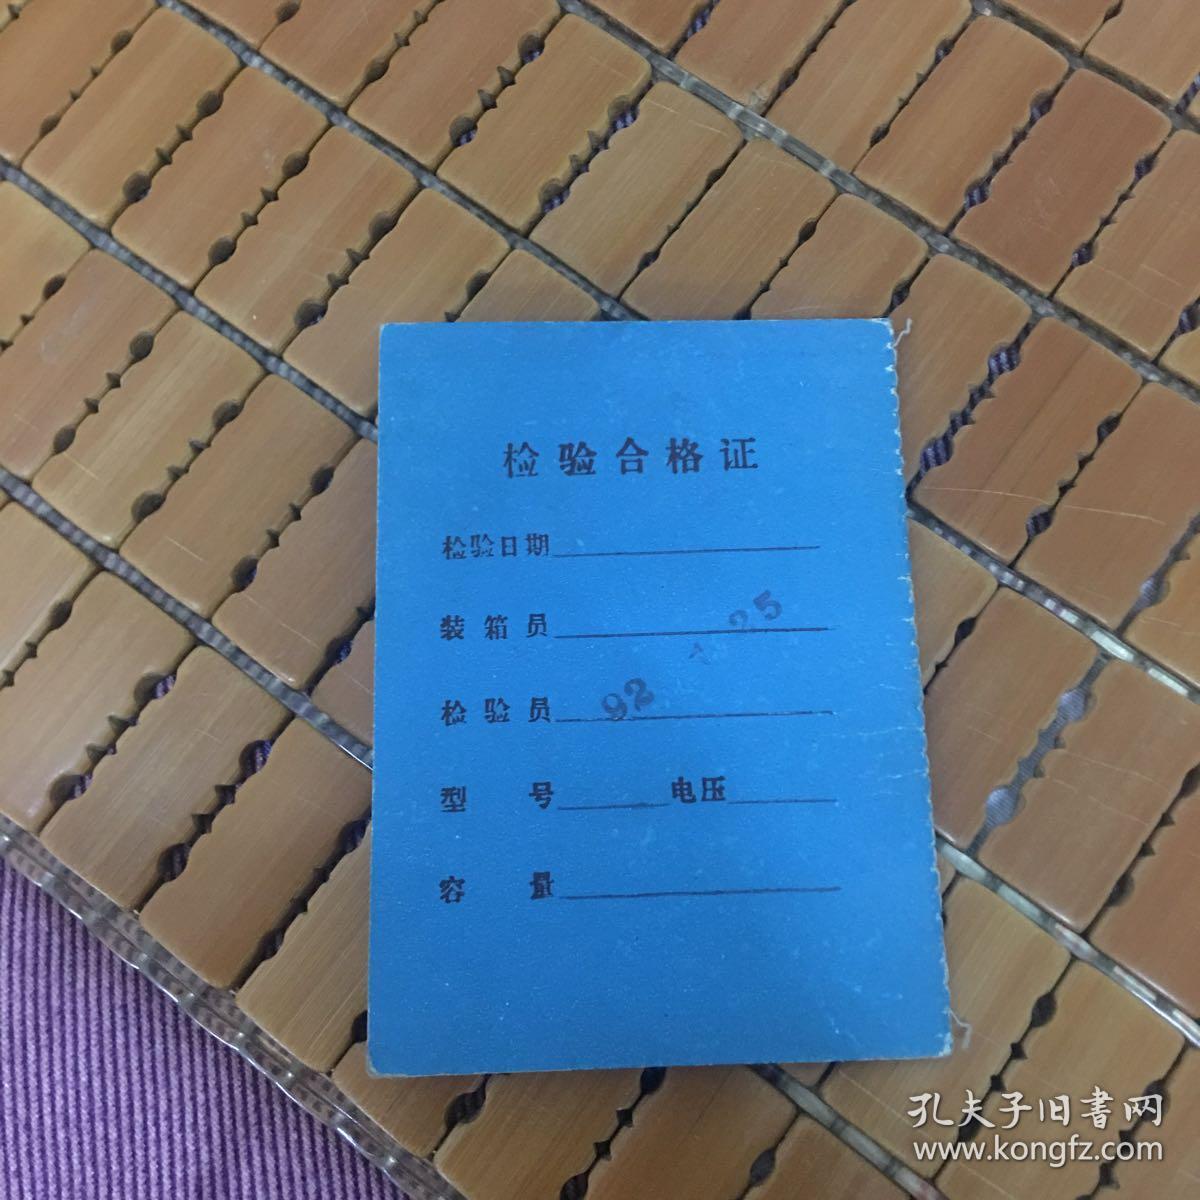 检验合格证
检验日期
装箱员
25
检验员
92
型号 电压
容量
孔夫子旧書网
www.kongfz.com